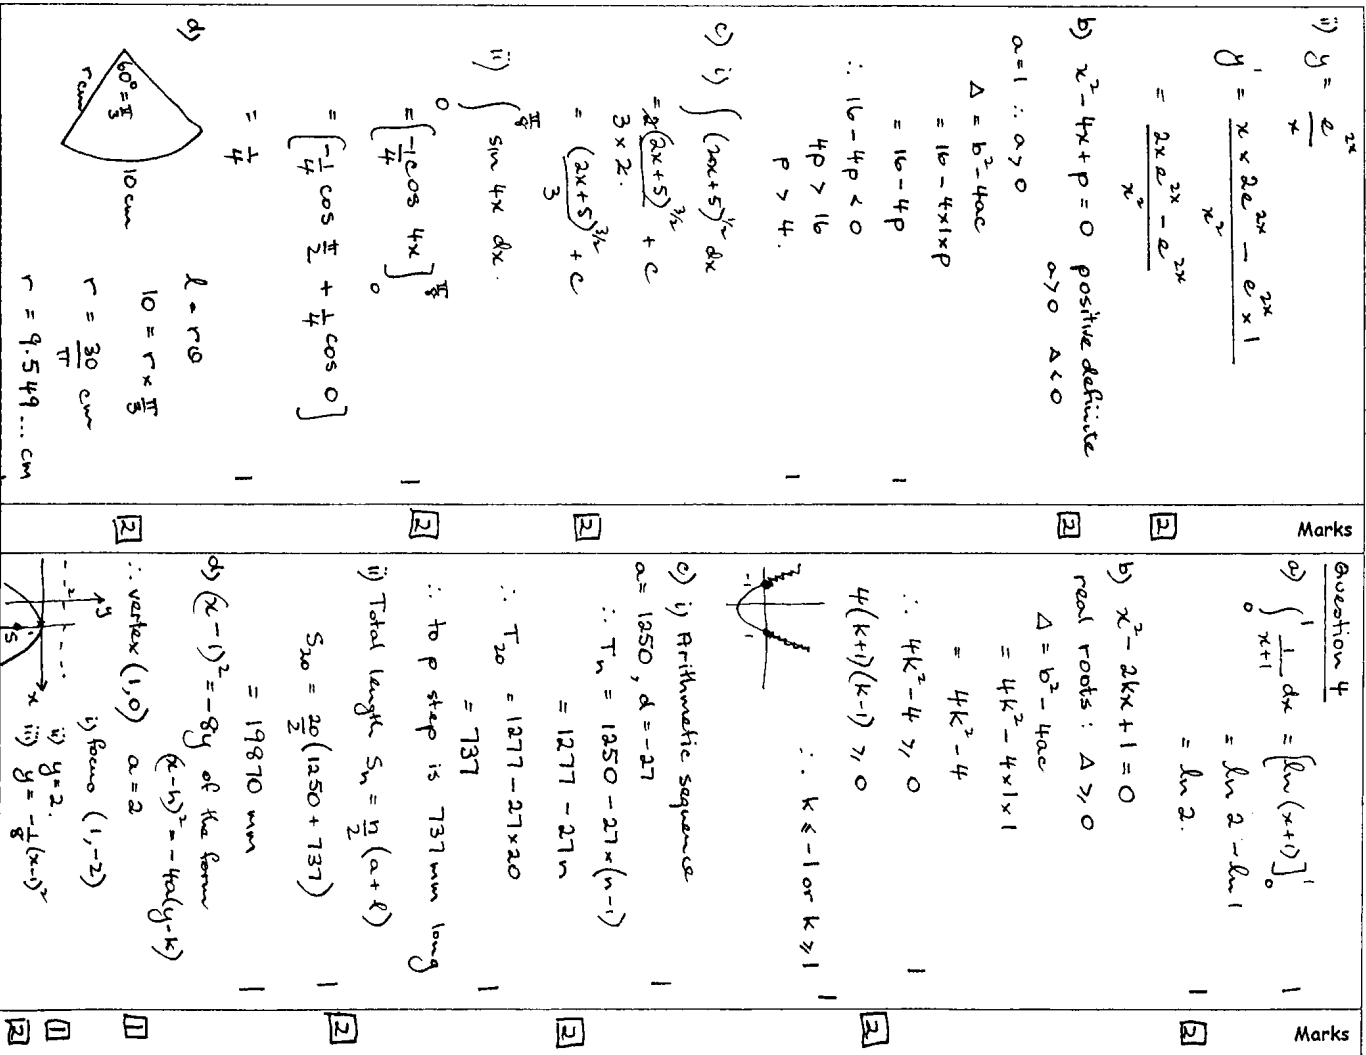 Marks
ii) y = e^{2x}/x
y' = (x × 2e^{2x} - e^{2x} × 1)/x²
= (2xe^{2x} - e^{2x})/x²
2
b) x² - 4x + p = 0 positive definite
a > 0 Δ < 0
2
a = 1 ∴ a > 0
Δ = b² - 4ac
= 16 - 4×1×p
= 16 - 4p
1
∴ 16 - 4p < 0
4p > 16
p > 4.
1
c) i) ∫ (2x+5)^{1/2} dx
= 2(2x+5)^{3/2}/(3 × 2.) + c
= (2x+5)^{3/2}/3 + c
2
ii) ∫_0^{π/8} sin 4x dx.
= [-1/4 cos 4x]_0^{π/8}
1
2
= [-1/4 cos π/2 + 1/4 cos 0]
= 1/4
1
d) 60° = π/3
r cm
10 cm
l = rθ
10 = r × π/3
2
r = 30/π cm
r = 9.549... cm
Marks
Question 4
a) ∫_0^1 1/(x+1) dx = [ln(x+1)]_0^1
1
= ln 2 - ln 1
= ln 2.
1
2
b) x² - 2kx + 1 = 0
real roots: Δ ≥ 0
Δ = b² - 4ac
= 4k² - 4×1×1
= 4k² - 4
∴ 4k² - 4 ≥ 0
1
4(k+1)(k-1) ≥ 0
2
-1 1
∴ k ≤ -1 or k ≥ 1
1
c) i) Arithmetic sequence
a = 1250, d = -27
1
∴ Tn = 1250 - 27×(n-1)
= 1277 - 27n
2
∴ T20 = 1277 - 27×20
= 737
1
∴ top step is 737 mm long
ii) Total length Sn = n/2 (a + l)
2
S20 = 20/2 (1250 + 737)
1
= 19870 mm
1
d) (x - 1)² = -8y of the form
(x-h)² = -4a(y-k)
∴ vertex (1,0) a = 2
1
i) focus (1,-2)
y
2
ii) y = 2.
1
x
S
iii) y = -1/8 (x-1)²
2